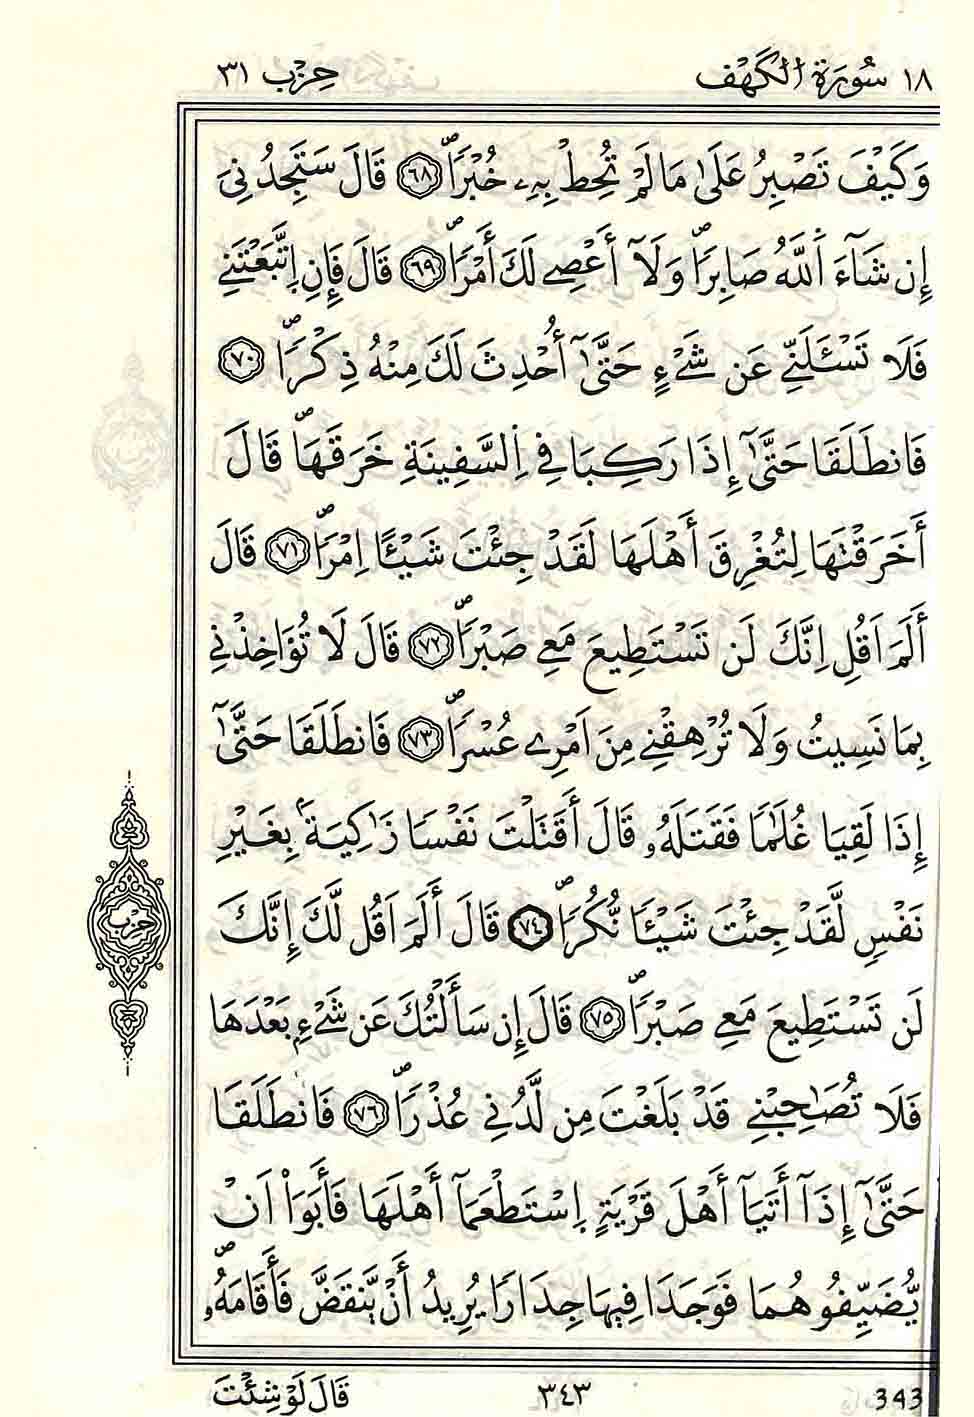 ١٨ سُورَةُ الكَهْف حِزْب ٣١
وَكَيْفَ تَصْبِرُ عَلَىٰ مَا لَمْ تُحِطْ بِهِۦ خُبْرًاۖ ٦٨ قَالَ سَتَجِدُنِىَ
إِن شَآءَ اَ۬للَّهُ صَابِرًاۖ وَلَآ أَعْصِے لَكَ أَمْرًاۖ ٦٩ قَالَ فَإِنِ اِ۪تَّبَعْتَنِے
فَلَا تَسْـَٔلَنِّے عَن شَےْءٍ حَتَّىٰٓ أُحْدِثَ لَكَ مِنْهُ ذِكْرًاۖ ٧٠
فَانطَلَقَا حَتَّىٰٓ إِذَا رَكِبَا فِے اِ۬لسَّفِينَةِ خَرَقَهَاۖ قَالَ
أَخَرَقْتَهَا لِتُغْرِقَ أَهْلَهَا لَقَدْ جِئْتَ شَيْـًٔا اِمْرًاۖ ٧١ قَالَ
أَلَمَ اَقُلِ اِنَّكَ لَن تَسْتَطِيعَ مَعِے صَبْرًاۖ ٧٢ قَالَ لَا تُؤَاخِذْنِے
بِمَا نَسِيتُ وَلَا تُرْهِقْنِے مِنَ اَمْرِے عُسْرًاۖ ٧٣ فَانطَلَقَا حَتَّىٰٓ
إِذَا لَقِيَا غُلَٰمًا فَقَتَلَهُۥ قَالَ أَقَتَلْتَ نَفْسًا زَٰكِيَةَۢ بِغَيْرِ
نَفْسٍ لَّقَدْ جِئْتَ شَيْـًٔا نُّكُرًاۖ ٧٤ قَالَ أَلَمَ اَقُل لَّكَ إِنَّكَ
لَن تَسْتَطِيعَ مَعِے صَبْرًاۖ ٧٥ قَالَ إِن سَأَلْتُكَ عَن شَےْءِۢ بَعْدَهَا
فَلَا تُصَٰحِبْنِے قَدْ بَلَغْتَ مِن لَّدُنِے عُذْرًاۖ ٧٦ فَانطَلَقَا
حَتَّىٰٓ إِذَآ أَتَيَآ أَهْلَ قَرْيَةٍ اِ۪سْتَطْعَمَآ أَهْلَهَا فَأَبَوَاْ اَنْ
يُّضَيِّفُوهُمَا فَوَجَدَا فِيهَا جِدَارًا يُرِيدُ أَنْ يَّنقَضَّ فَأَقَامَهُۥۖ
حزب
قَالَ لَوْ شِئْتَ ٣٤٣ 343